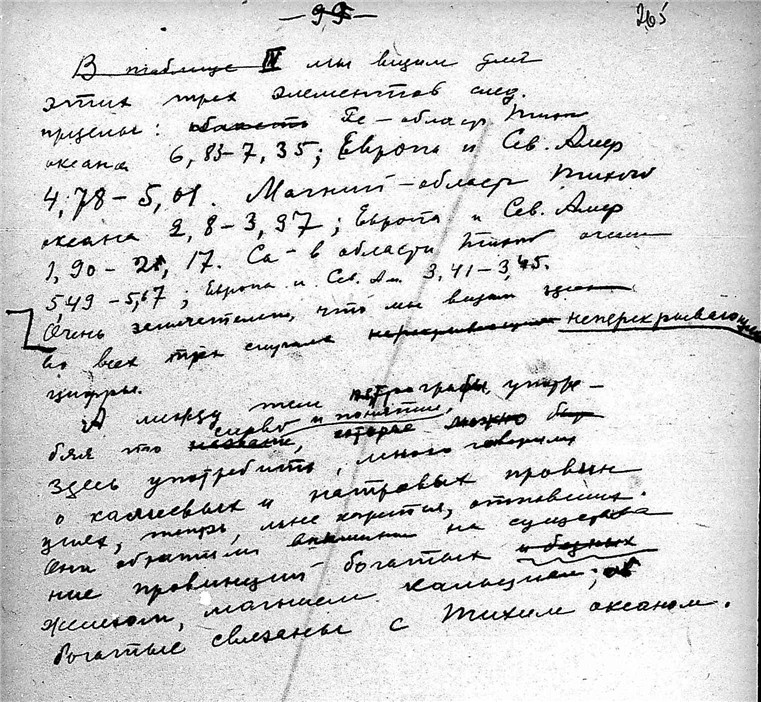 — 99 — 265
В таблице IV мы видим для
этих трех элементов след.
пределы: Fe — област Тихог
океана 6,83–7,35; Европа и Сев. Амер
4,78 – 5,01. Магний — область Тихого
океана 2,8–3,97; Европа и Сев. Амер
1,90 – 2,17. Ca — в области Тихог океан
5,49 – 5,67; Европа и Сев. Ам. 3,41–3,45.
Очень замечательно, что мы видим здесь
во всех трех случаях неперекрывающиеся
цифры.
А между тем петрографы, употре-
слово и понятие,
бляя то название, которые можно было
здесь употребить, много говорили
о калиевых и натровых провин
циях, теперь, мне кажется, отпавших.
Они обратили внимание на существова
ние провинций богатых и бедных
железом, магнием кальцием;
богатые связаны с Тихим океаном.